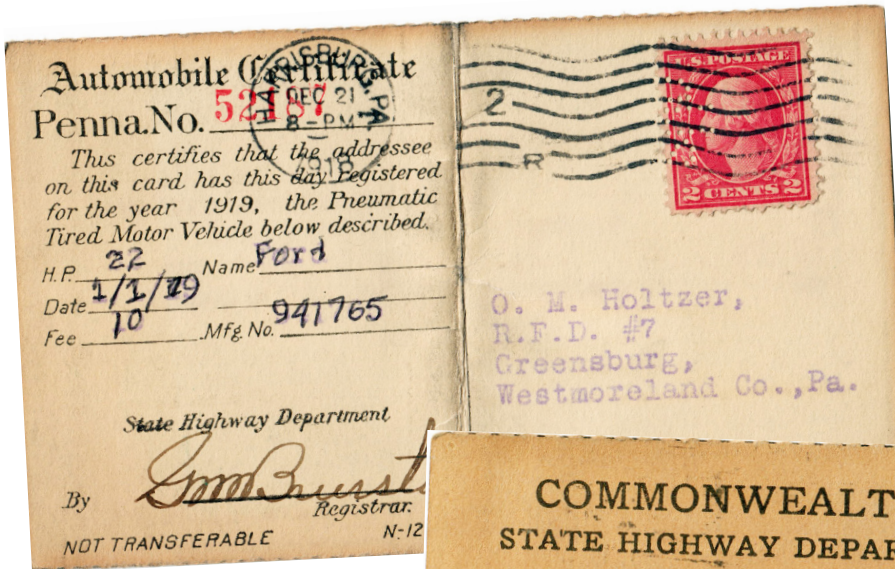 Automobile Certificate
Penna. No. 52187
HARRISBURG, PA.
DEC 21
8-PM
1918
This certifies that the addressee
on this card has this day registered
for the year 1919, the Pneumatic
Tired Motor Vehicle below described.
H.P. 22 Name Ford
Date 1/1/19
Fee 10 Mfg. No. 941765
State Highway Department
By
Registrar.
NOT TRANSFERABLE N-12
2
R
U.S. POSTAGE
2 CENTS 2
O. M. Holtzer,
R.F.D. #7
Greensburg,
Westmoreland Co.,Pa.
COMMONWEALT
STATE HIGHWAY DEPAR